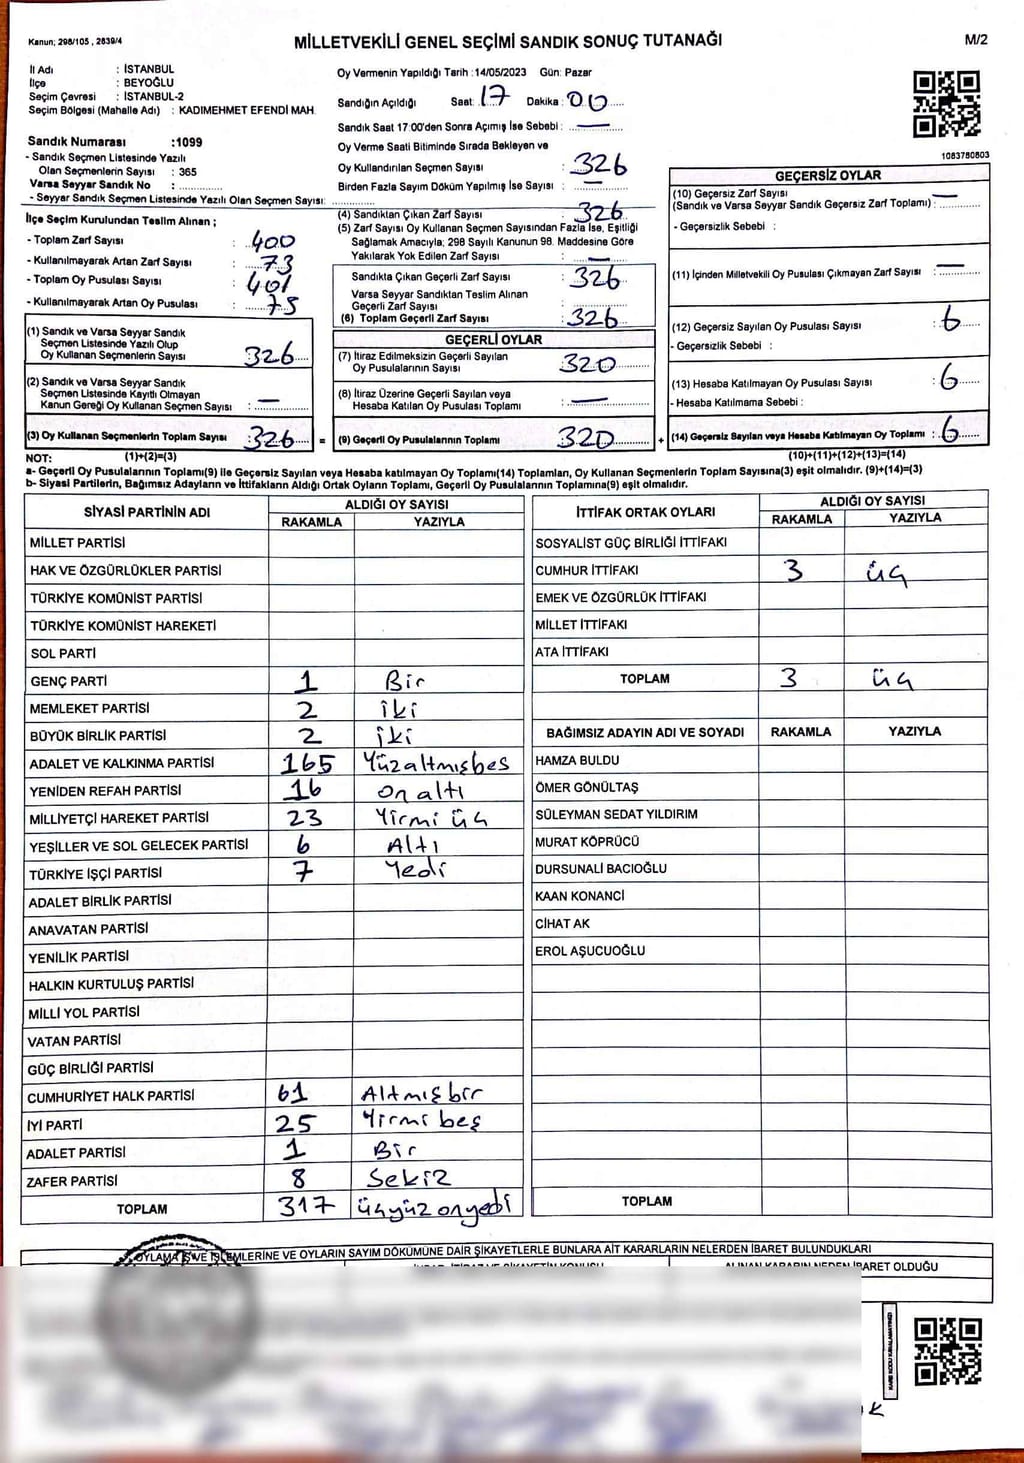 Kanun; 298/105 , 2839/4
MİLLETVEKİLİ GENEL SEÇİMİ SANDIK SONUÇ TUTANAĞI
M/2
İl Adı : İSTANBUL
İlçe : BEYOĞLU
Seçim Çevresi : İSTANBUL-2
Seçim Bölgesi (Mahalle Adı) : KADIMEHMET EFENDİ MAH.
Sandık Numarası :1099
- Sandık Seçmen Listesinde Yazılı
Olan Seçmenlerin Sayısı : 365
Varsa Seyyar Sandık No :
- Seyyar Sandık Seçmen Listesinde Yazılı Olan Seçmen Sayısı:
Oy Vermenin Yapıldığı Tarih :14/05/2023 Gün: Pazar
Sandığın Açıldığı Saat: 17 Dakika : 00
Sandık Saat 17:00'den Sonra Açımış İse Sebebi : —
Oy Verme Saati Bitiminde Sırada Bekleyen ve
Oy Kullandırılan Seçmen Sayısı : 326
Birden Fazla Sayım Döküm Yapılmış İse Sayısı : —
1083780803
İlçe Seçim Kurulundan Teslim Alınan ;
- Toplam Zarf Sayısı : 400
- Kullanılmayarak Artan Zarf Sayısı : 73
- Toplam Oy Pusulası Sayısı : 401
- Kullanılmayarak Artan Oy Pusulası : 75
(1) Sandık ve Varsa Seyyar Sandık
Seçmen Listesinde Yazılı Olup
Oy Kullanan Seçmenlerin Sayısı 326
(2) Sandık ve Varsa Seyyar Sandık
Seçmen Listesinde Kayıtlı Olmayan
Kanun Gereği Oy Kullanan Seçmen Sayısı : —
(3) Oy Kullanan Seçmenlerin Toplam Sayısı :326 =
(4) Sandıktan Çıkan Zarf Sayısı : 326
(5) Zarf Sayısı Oy Kullanan Seçmen Sayısından Fazla İse, Eşitliği
Sağlamak Amacıyla; 298 Sayılı Kanunun 98. Maddesine Göre
Yakılarak Yok Edilen Zarf Sayısı : —
Sandıkta Çıkan Geçerli Zarf Sayısı : 326
Varsa Seyyar Sandıktan Teslim Alınan
Geçerli Zarf Sayısı :
(6) Toplam Geçerli Zarf Sayısı : 326
GEÇERLİ OYLAR
(7) İtiraz Edilmeksizin Geçerli Sayılan
Oy Pusulalarının Sayısı : 320
(8) İtiraz Üzerine Geçerli Sayılan veya
Hesaba Katılan Oy Pusulası Toplamı : —
(9) Geçerli Oy Pusulalarının Toplamı : 320 +
GEÇERSİZ OYLAR
(10) Geçersiz Zarf Sayısı —
(Sandık ve Varsa Seyyar Sandık Geçersiz Zarf Toplamı) :
- Geçersizlik Sebebi :
(11) İçinden Milletvekili Oy Pusulası Çıkmayan Zarf Sayısı : —
(12) Geçersiz Sayılan Oy Pusulası Sayısı : 6
- Geçersizlik Sebebi :
(13) Hesaba Katılmayan Oy Pusulası Sayısı : 6
- Hesaba Katılmama Sebebi :
(14) Geçersiz Sayılan veya Hesaba Katılmayan Oy Toplamı : 6
NOT: (1)+(2)=(3) (10)+(11)+(12)+(13)=(14)
a- Geçerli Oy Pusulalarının Toplamı(9) ile Geçersiz Sayılan veya Hesaba katılmayan Oy Toplamı(14) Toplamları, Oy Kullanan Seçmenlerin Toplam Sayısına(3) eşit olmalıdır. (9)+(14)=(3)
b- Siyasi Partilerin, Bağımsız Adayların ve İttifakların Aldığı Ortak Oyların Toplamı, Geçerli Oy Pusulalarının Toplamına(9) eşit olmalıdır.
SİYASİ PARTİNİN ADI ALDIĞI OY SAYISI
RAKAMLA YAZIYLA
MİLLET PARTİSİ
HAK VE ÖZGÜRLÜKLER PARTİSİ
TÜRKİYE KOMÜNİST PARTİSİ
TÜRKİYE KOMÜNİST HAREKETİ
SOL PARTİ
GENÇ PARTİ 1 Bir
MEMLEKET PARTİSİ 2 iki
BÜYÜK BİRLİK PARTİSİ 2 iki
ADALET VE KALKINMA PARTİSİ 165 Yüzaltmışbes
YENİDEN REFAH PARTİSİ 16 on altı
MİLLİYETÇİ HAREKET PARTİSİ 23 Yirmi üç
YEŞİLLER VE SOL GELECEK PARTİSİ 6 Altı
TÜRKİYE İŞÇİ PARTİSİ 7 Yedi
ADALET BİRLİK PARTİSİ
ANAVATAN PARTİSİ
YENİLİK PARTİSİ
HALKIN KURTULUŞ PARTİSİ
MİLLİ YOL PARTİSİ
VATAN PARTİSİ
GÜÇ BİRLİĞİ PARTİSİ
CUMHURİYET HALK PARTİSİ 61 Altmışbir
İYİ PARTİ 25 Yirmi beş
ADALET PARTİSİ 1 Bir
ZAFER PARTİSİ 8 Sekiz
TOPLAM 317 üçyüz onyedi
İTTİFAK ORTAK OYLARI ALDIĞI OY SAYISI
RAKAMLA YAZIYLA
SOSYALİST GÜÇ BİRLİĞİ İTTİFAKI
CUMHUR İTTİFAKI 3 üç
EMEK VE ÖZGÜRLÜK İTTİFAKI
MİLLET İTTİFAKI
ATA İTTİFAKI
TOPLAM 3 üç
BAĞIMSIZ ADAYIN ADI VE SOYADI RAKAMLA YAZIYLA
HAMZA BULDU
ÖMER GÖNÜLTAŞ
SÜLEYMAN SEDAT YILDIRIM
MURAT KÖPRÜCÜ
DURSUNALİ BACIOĞLU
KAAN KONANCİ
CİHAT AK
EROL AŞUCUOĞLU
TOPLAM
OYLAMA İŞ VE İŞLEMLERİNE VE OYLARIN SAYIM DÖKÜMÜNE DAİR ŞİKAYETLERLE BUNLARA AİT KARARLARIN NELERDEN İBARET BULUNDUKLARI
ALINAN KARARIN NEDEN İBARET OLDUĞU
KARE KODU KARALAMAYINIZ